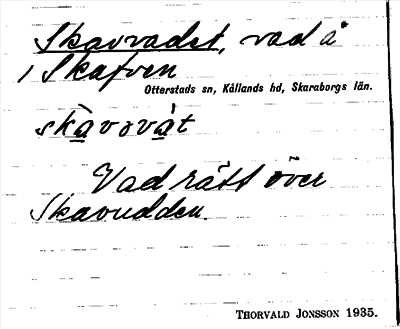 Skavvadet, vad å
i Skafven
Otterstads sn, Kållands hd, Skaraborgs län.
skàvovàt
Vad rätt över
Skavudden.
THORVALD JONSSON 1935.